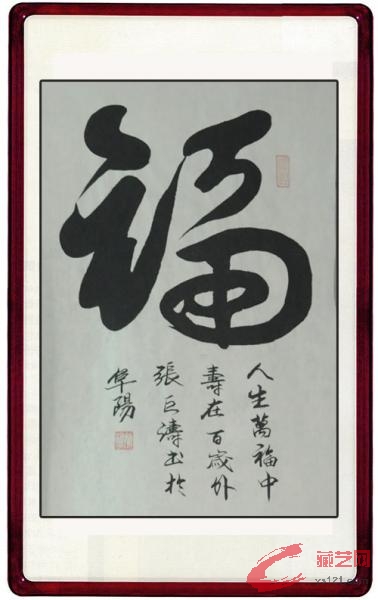 福
人生萬福中
壽在百歲外
張巨濤书於
阜陽
藏艺网